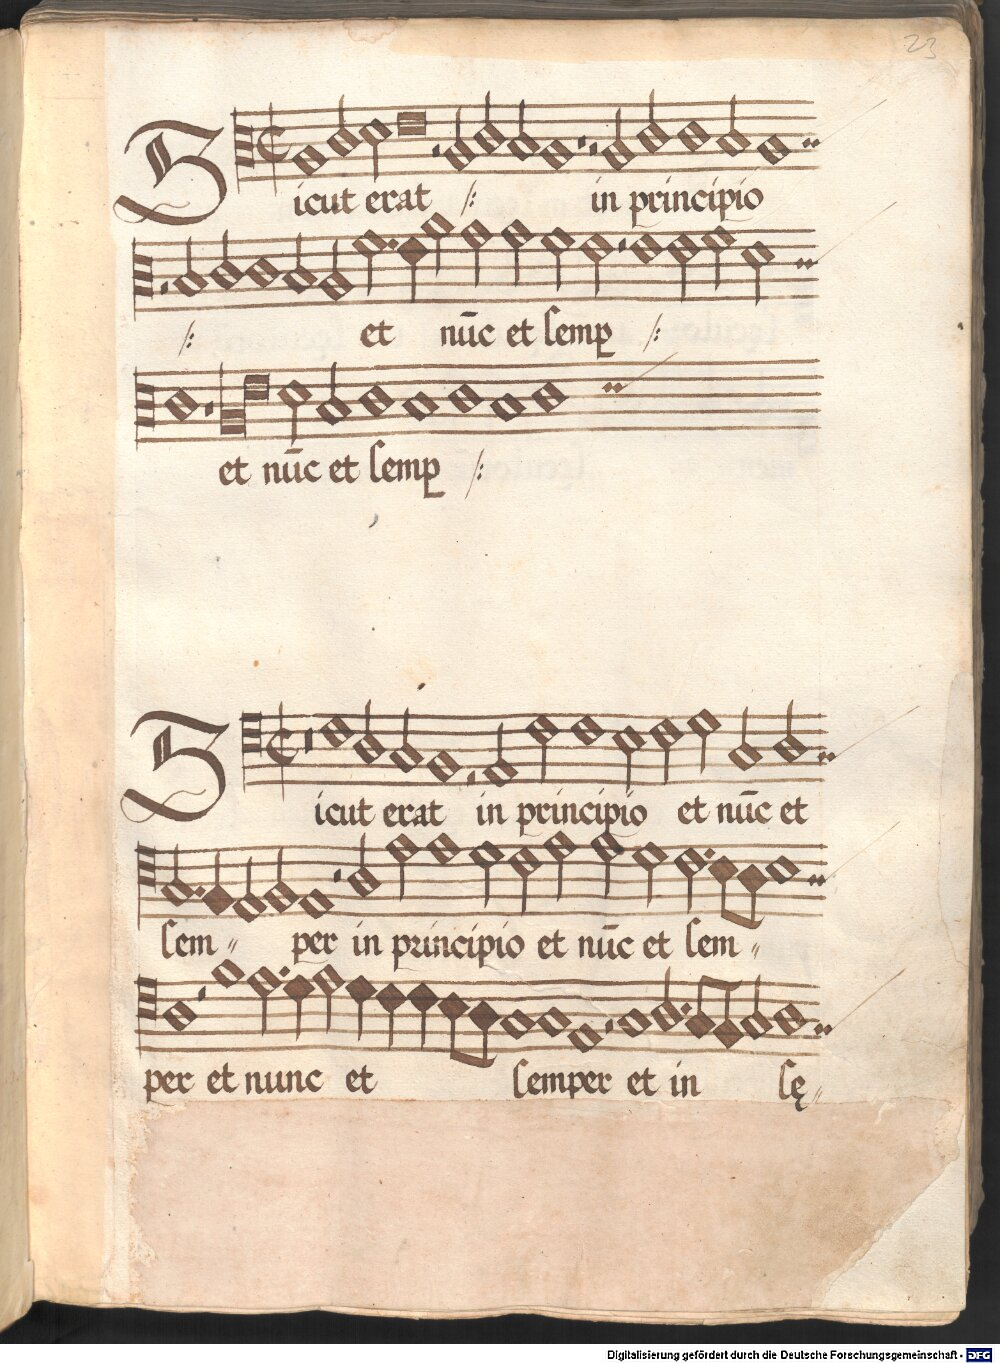 23
Sicut erat /: in principio
/: et nūc et semꝑ /:
et nūc et semꝑ /:
Sicut erat in principio et nūc et
sem〃 per in principio et nūc et sem〃
per et nunc et semper et in sę〃
Digitalisierung gefördert durch die Deutsche Forschungsgemeinschaft - DFG